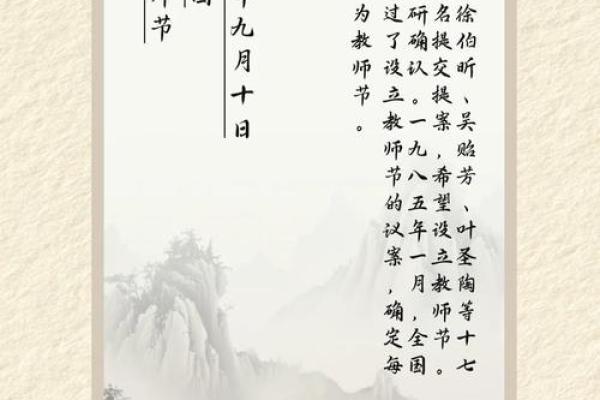 徐伯昕、吴贻芳、叶圣陶等十七
名提交提案,希望设立教师节。
研确认。一九八五年一月,全国
过了设立教师节的议案,确定每
为教师节。
九月十日
师节